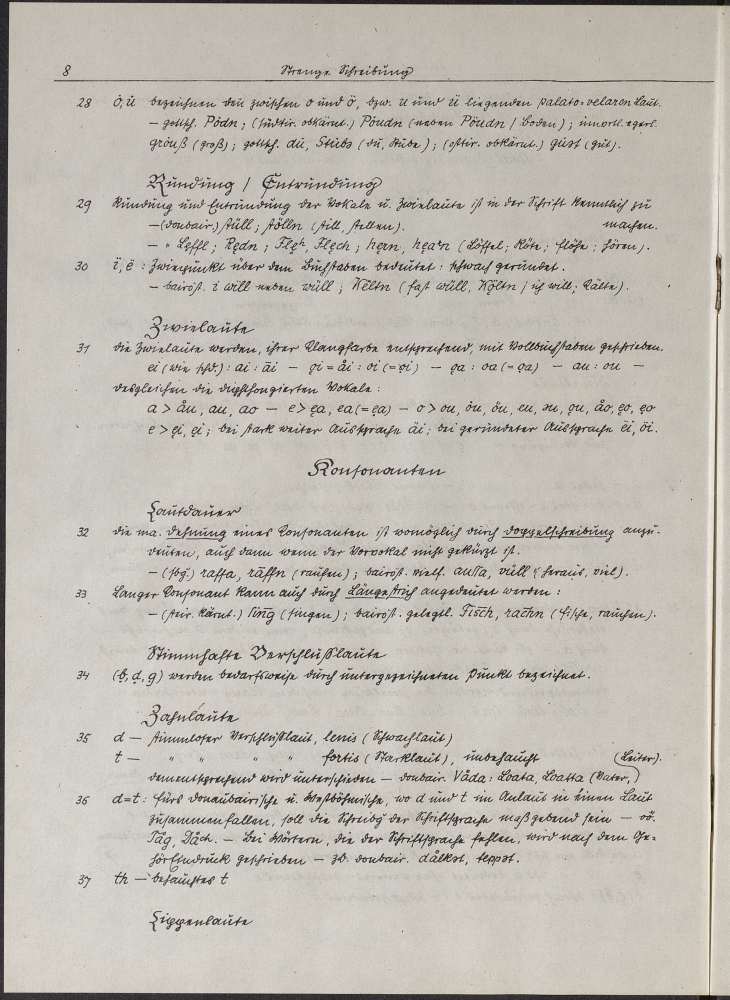 8 Strenge Schreibung
28 ȯ, u̇ bezeichnen den zwischen o und ö, bzw. u und ü liegenden palato-velaren Laut.
— gottsch. Pȯdn; (südtir. obkärnt.) Pȯudn (neben Pöudn / Boden); innvrtl. egerl.
grȯuß (groß); gottsch. du̇, Stu̇bə (du, Stube); (osttir. obkärnt.) gu̇ət (gut).
Rundung / Entrundung
29 Rundung und Entrundung der Vokale u. Zwielaute ist in der Schrift kenntlich zu
— (donbair.) stüll, stölln (still, stellen). machen.
— " Leffl; Redn; Fleh, Flech; hern, hean (Löffel; Röte; Flöhe; hören).
30 ï, ë : Zwiepunkt über dem Buchstaben bedeutet: schwach gerundet.
— bairöst. i will neben wüll; Këltn (fast wüll, Költn / ich will; Kälte).
Zwielaute
31 Die Zwielaute werden, ihrer Klangfarbe entsprechend, mit Vollbuchstaben geschrieben.
ei (wie schd.) : ai : äi — ǫi = åi : oi (= ọi) — ǫa : oa (= ọa) — au : ou —
desgleichen die diphthongierten Vokale :
a > åu, au, ao — e > ęa, ea (= ẹa) — o > ou, öu, ȯu, eu, əu, ǫu, åo, ęo, ẹo
e > ęi, ẹi; bei stark weiter Aussprache äi; bei gerundeter Aussprache ëi, öi.
Konsonanten
Lautdauer
32 Die ma. Dehnung eines Konsonanten ist womöglich durch Doppelschreibung anzu-
deuten, auch dann wenn der Vorvokal nicht gekürzt ist.
— (sbg.) raffa, räffn (raufen); bairöst. vielf. aussa, vüll (heraus, viel).
33 Langer Konsonant kann auch durch Längestrich angedeutet werden :
— (steir. kärnt.) sing (singen); bairöst. gelegtl. Fisch, rachn (Fische, rauchen).
Stimmhafte Verschlußlaute
34 (ḅ, ḍ, g̣) werden bedarfsweise durch untergezeichneten Punkt bezeichnet.
Zahnlaute
35 d — stimmloser Verschlußlaut, lenis (Schwachlaut)
t — " " " fortis (Starklaut), unbehaucht (Leiter).
dementsprechend wird unterschieden — donbair. Våda : Loata, Loatta (Vater,)
36 d=t : fürs Donaubairische u. Westböhmische, wo d und t im Anlaut in einen Laut
zusammenfallen, soll die Schreibg der Schriftsprache maßgebend sein — oö.
Tåg, Dåch. — Bei Wörtern, die der Schriftsprache fehlen, wird nach dem Ge-
hörseindruck geschrieben — zb. donbair. dålkət, teppət.
37 th — behauchtes t
Lippenlaute